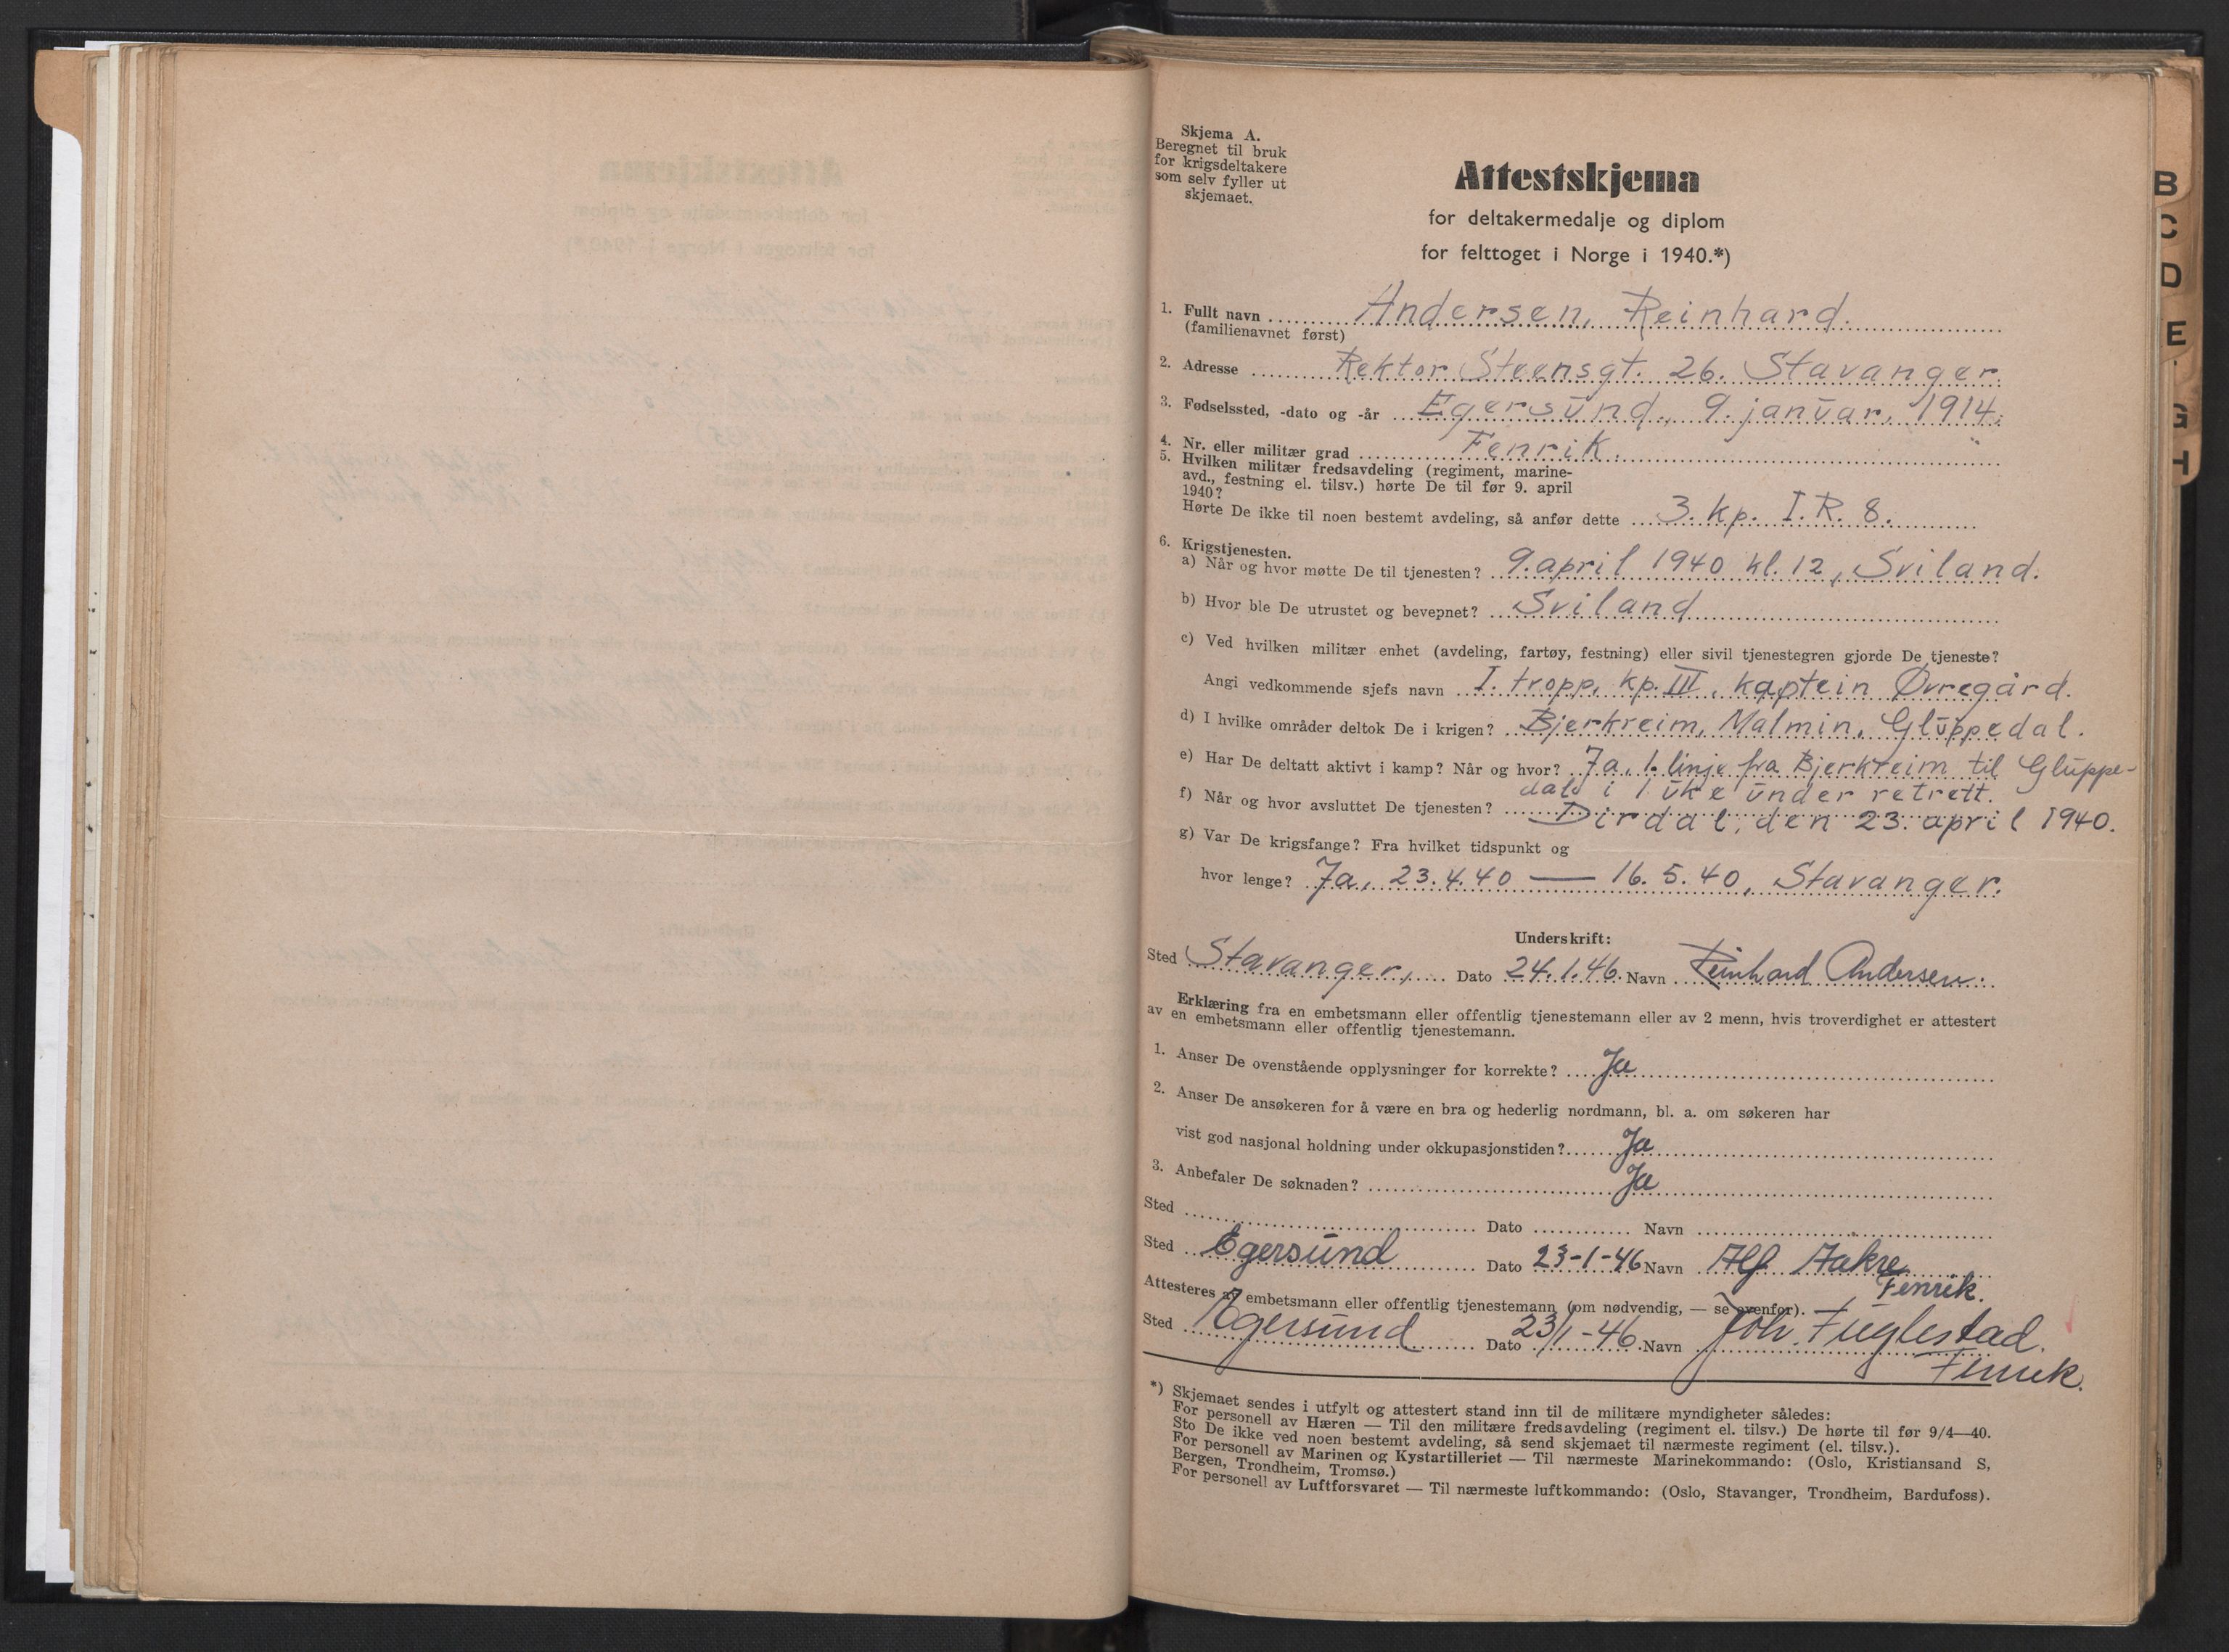 Skjema A.
Beregnet til bruk
for krigsdeltakere
som selv fyller ut
skjemaet.
Attestskjema
for deltakermedalje og diplom
for felttoget i Norge i 1940.*)
1. Fullt navn Andersen, Reinhard.
(familienavnet først)
2. Adresse Rektor Steensgt. 26. Stavanger.
3. Fødselssted, -dato og -år Egersund, 9. januar, 1914.
4. Nr. eller militær grad Fenrik.
5. Hvilken militær fredsavdeling (regiment, marine-
avd., festning el. tilsv.) hørte De til før 9. april
1940?
Hørte De ikke til noen bestemt avdeling, så anfør dette 3. kp. I.R. 8.
6. Krigstjenesten.
a) Når og hvor møtte De til tjenesten? 9. april 1940 kl. 12, Sviland.
b) Hvor ble De utrustet og bevepnet? Sviland
c) Ved hvilken militær enhet (avdeling, fartøy, festning) eller sivil tjenestegren gjorde De tjeneste?
Angi vedkommende sjefs navn I. tropp, kp. III, kaptein Øvregård.
d) I hvilke områder deltok De i krigen? Bjerkreim, Malmin, Gluppedal.
e) Har De deltatt aktivt i kamp? Når og hvor? Ja, 1. linje fra Bjerkreim til Gluppe-
dal i 1 uke under retrett.
f) Når og hvor avsluttet De tjenesten? Dirdal, den 23. april 1940.
g) Var De krigsfange? Fra hvilket tidspunkt og
hvor lenge? Ja, 23.4.40 — 16.5.40, Stavanger.
Underskrift:
Sted Stavanger, Dato 24.1.46. Navn Reinhard Andersen.
Erklæring fra en embetsmann eller offentlig tjenestemann eller av 2 menn, hvis troverdighet er attestert
av en embetsmann eller offentlig tjenestemann.
1. Anser De ovenstående opplysninger for korrekte? Ja
2. Anser De ansøkeren for å være en bra og hederlig nordmann, bl. a. om søkeren har
vist god nasjonal holdning under okkupasjonstiden? Ja
3. Anbefaler De søknaden? Ja
Sted Dato Navn
Sted Egersund Dato 23-1-46 Navn Alf Aakre
Fenrik.
Attesteres av embetsmann eller offentlig tjenestemann (om nødvendig, — se ovenfor).
Sted Egersund Dato 23/1-46. Navn Joh. Fuglestad.
Fenrik.
*) Skjemaet sendes i utfylt og attestert stand inn til de militære myndigheter således:
For personell av Hæren — Til den militære fredsavdeling (regiment el. tilsv.) De hørte til før 9/4—40.
Sto De ikke ved noen bestemt avdeling, så send skjemaet til nærmeste regiment (el. tilsv.).
For personell av Marinen og Kystartilleriet — Til nærmeste Marinekommando: (Oslo, Kristiansand S,
Bergen, Trondheim, Tromsø.)
For personell av Luftforsvaret — Til nærmeste luftkommando: (Oslo, Stavanger, Trondheim, Bardufoss).
B
C
D
E
G
H